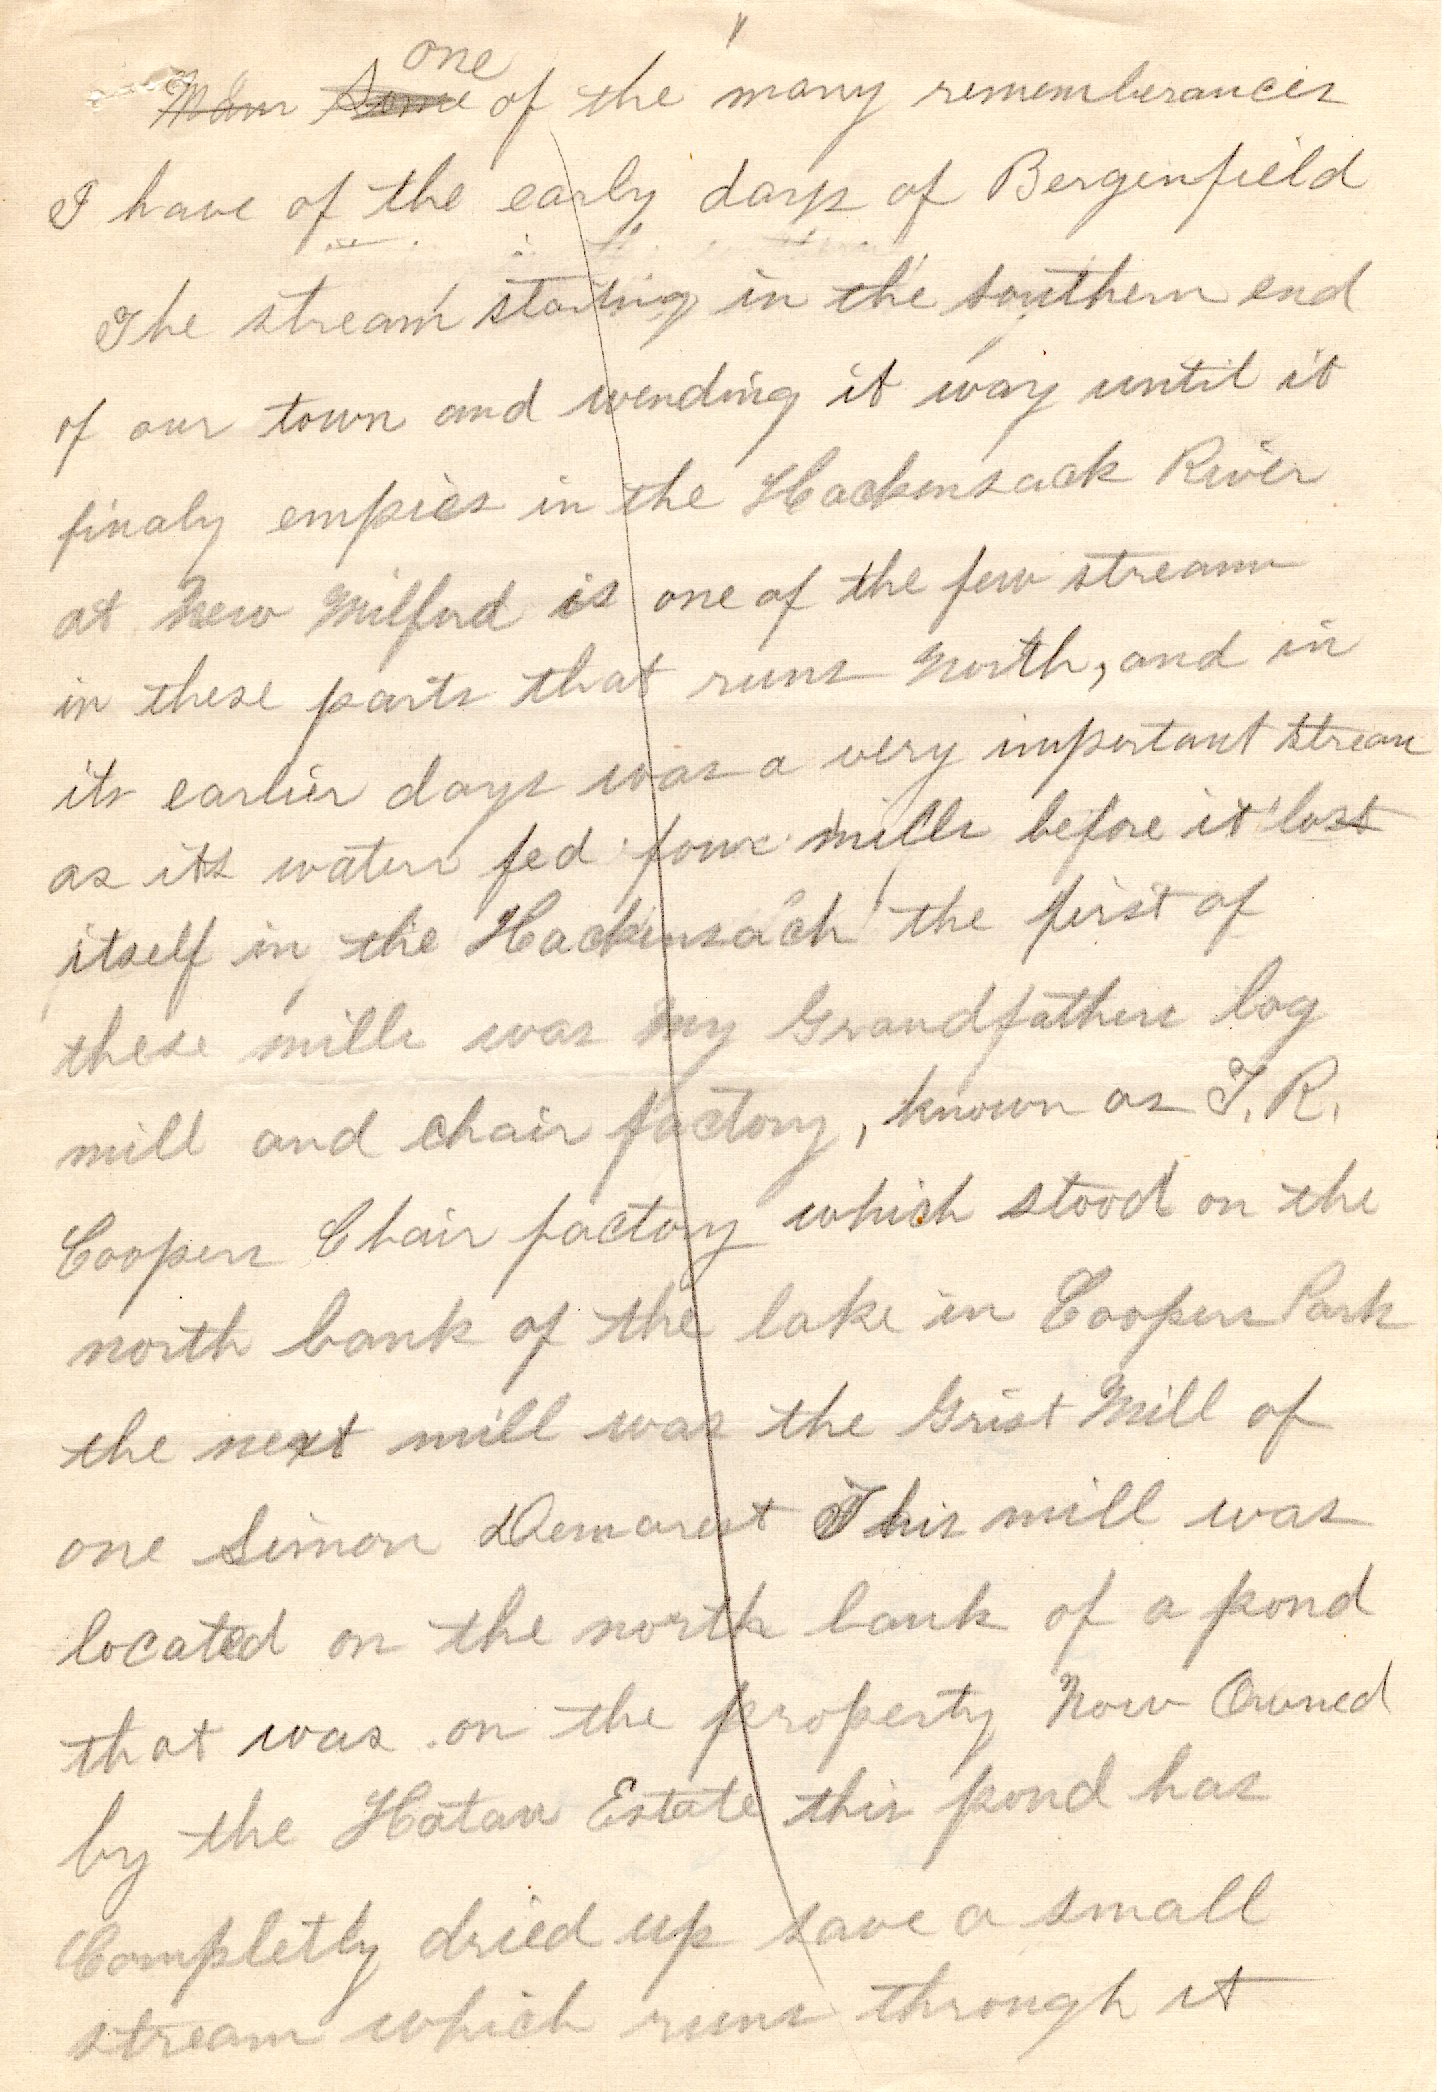 one
Mem Some of the many rememberances
I have of the early days of Bergenfield
The stream starting in the southern end
of our town and wending it way until it
finaly empies in the Hackensack River
at New Milford is one of the few streams
in these parts that runs North, and in
its earlier days was a very important stream
as its waters fed four mills before it lost
itself in the Hackensack the first of
these mills was my Grandfathers log
mill and chair factory, known as T. R.
Coopers Chair factory which stood on the
north bank of the lake in Coopers Park
the next mill was the Grist Mill of
one Simon Demarest This mill was
located on the north bank of a pond
that was on the property Now Owned
by the Hatan Estate this pond has
Completly dried up save a small
stream which runs through it